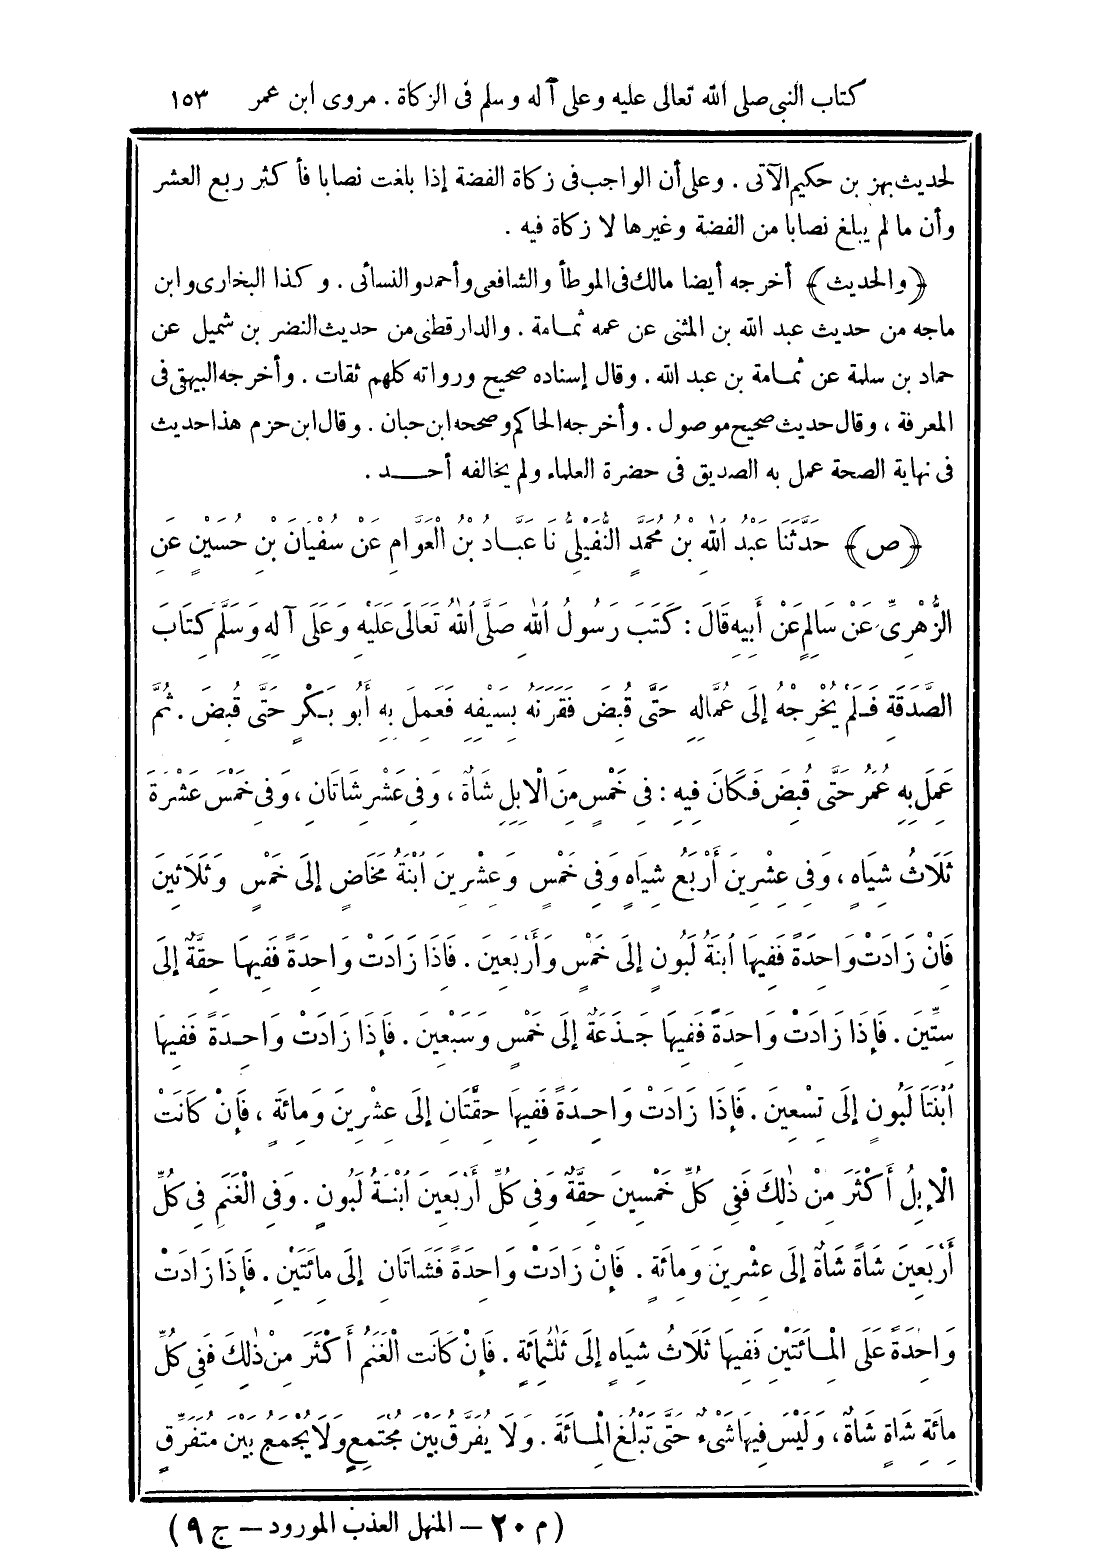 كتاب النبى صلى الله تعالى عليه وعلى آله وسلم فى الزكاة . مروى ابن عمر ١٥٣
لحديث بهز بن حكيم الآتى . وعلى أن الواجب فى زكاة الفضة إذا بلغت نصابا فأكثر ربع العشر
وأن مالم يبلغ نصابا من الفضة وغيرها لا زكاة فيه .
﴿والحديث﴾ أخرجه أيضا مالك فى الموطأ والشافعى وأحمد والنسائى . وكذا البخارى وابن
ماجه من حديث عبد الله بن المثنى عن عمه ثمامة . والدارقطنى من حديث النضر بن شميل عن
حماد بن سلمة عن ثمامة بن عبد الله . وقال إسناده صحيح ورواته كلهم ثقات . وأخرجه البيهقى فى
المعرفة ، وقال حديث صحيح موصول . وأخرجه الحاكم وصححه ابن حبان . وقال ابن حزم هذا حديث
فى نهاية الصحة عمل به الصديق فى حضرة العلماء ولم يخالفه أحد .
﴿ص﴾ حَدَّثَنَا عَبْدُ اللهِ بْنُ مُحَمَّدٍ النُّفَيْلِىُّ نَا عَبَّادُ بْنُ الْعَوَّامِ عَنْ سُفْيَانَ بْنِ حُسَيْنٍ عَنِ
الزُّهْرِىِّ عَنْ سَالِمٍ عَنْ أَبِيهِ قَالَ : كَتَبَ رَسُولُ اللهِ صَلَّى اللهُ تَعَالَى عَلَيْهِ وَعَلَى آلِهِ وَسَلَّمَ كِتَابَ
الصَّدَقَةِ فَلَمْ يُخْرِجْهُ إِلَى عُمَّالِهِ حَتَّى قُبِضَ فَقَرَنَهُ بِسَيْفِهِ فَعَمِلَ بِهِ أَبُو بَكْرٍ حَتَّى قُبِضَ . ثُمَّ
عَمِلَ بِهِ عُمَرُ حَتَّى قُبِضَ فَكَانَ فِيهِ : فِى خَمْسٍ مِنَ الْإِبِلِ شَاةٌ ، وَفِى عَشْرٍ شَاتَانِ ، وَفِى خَمْسَ عَشْرَةَ
ثَلَاثُ شِيَاهٍ ، وَفِى عِشْرِينَ أَرْبَعُ شِيَاهٍ وَفِى خَمْسٍ وَعِشْرِينَ ابْنَةُ مَخَاضٍ إِلَى خَمْسٍ وَثَلَاثِينَ
فَإِنْ زَادَتْ وَاحِدَةً فَفِيهَا ابْنَةُ لَبُونٍ إِلَى خَمْسٍ وَأَرْبَعِينَ . فَإِذَا زَادَتْ وَاحِدَةً فَفِيهَا حِقَّةٌ إِلَى
سِتِّينَ . فَإِذَا زَادَتْ وَاحِدَةً فَفِيهَا جَذَعَةٌ إِلَى خَمْسٍ وَسَبْعِينَ . فَإِذَا زَادَتْ وَاحِدَةً فَفِيهَا
ابْنَتَا لَبُونٍ إِلَى تِسْعِينَ . فَإِذَا زَادَتْ وَاحِدَةً فَفِيهَا حِقَّتَانِ إِلَى عِشْرِينَ وَمِائَةٍ ، فَإِنْ كَانَتْ
الْإِبِلُ أَكْثَرَ مِنْ ذٰلِكَ فَفِى كُلِّ خَمْسِينَ حِقَّةٌ وَفِى كُلِّ أَرْبَعِينَ ابْنَةُ لَبُونٍ . وَفِى الْغَنَمِ فِى كُلِّ
أَرْبَعِينَ شَاةً شَاةٌ إِلَى عِشْرِينَ وَمِائَةٍ . فَإِنْ زَادَتْ وَاحِدَةً فَشَاتَانِ إِلَى مِائَتَيْنِ . فَإِذَا زَادَتْ
وَاحِدَةً عَلَى الْمِائَتَيْنِ فَفِيهَا ثَلَاثُ شِيَاهٍ إِلَى ثَلٰثِمِائَةٍ . فَإِنْ كَانَتِ الْغَنَمُ أَكْثَرَ مِنْ ذٰلِكَ فَفِى كُلِّ
مِائَةِ شَاةٍ شَاةٌ ، وَلَيْسَ فِيهَا شَىْءٌ حَتَّى تَبْلُغَ الْمِائَةَ . وَلَا يُفَرَّقُ بَيْنَ مُجْتَمِعٍ وَلَا يُجْمَعُ بَيْنَ مُتَفَرِّقٍ
(م ٢٠ – المنهل العذب المورود – ج ٩)